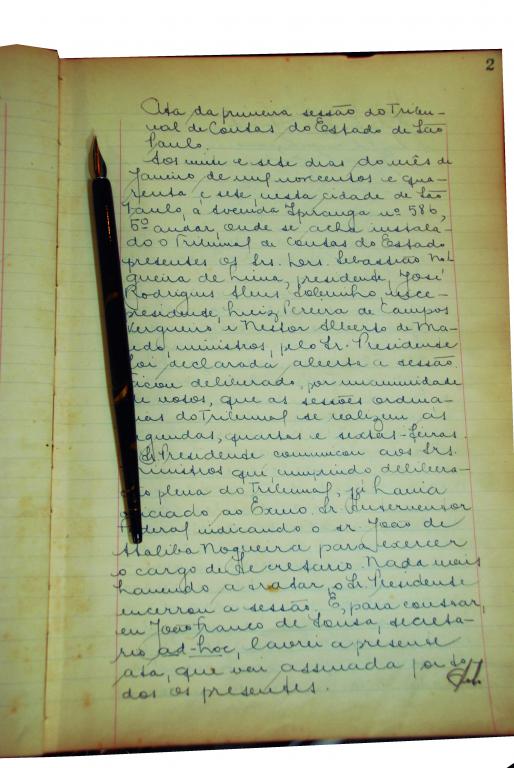 2
Ata da primeira sessão do Tribu-
nal de Contas do Estado de São
Paulo.
Aos vinte e sete dias do mês de
Janeiro de mil novecentos e qua-
renta e sete, nesta cidade de São
Paulo, á Avenida Ipiranga nº 586,
5º andar, onde se acha instala-
do o Tribunal de Contas do Estado
presentes os Srs. Drs. Sebastião No-
gueira de Lima, presidente, José
Rodrigues Alves Sobrinho, vice-
presidente, Luiz Pereira de Campos
Vergueiro e Nestor Alberto de Ma-
cedo, ministros, pelo Sr. Presidente
foi declarada aberta a sessão.
Ficou deliberado, por unanimidade
de votos, que as sessões ordina-
rias do Tribunal se realizem ás
segundas, quartas e sextas-feiras.
O Sr. Presidente communicou aos Srs.
Ministros que, cumprindo delibera-
ção plena do Tribunal, já havia
oficiado ao Exmo. Sr. Interventor
Federal indicando o sr. João de
Ataliba Nogueira para exercer
o cargo de Secretario. Nada mais
havendo a tratar, o Sr. Presidente
encerrou a sessão. E, para constar,
eu João Franco de Sousa, secreta-
rio ad-hoc, lavrei a presente
ata, que vai assinada por to-
dos os presentes.